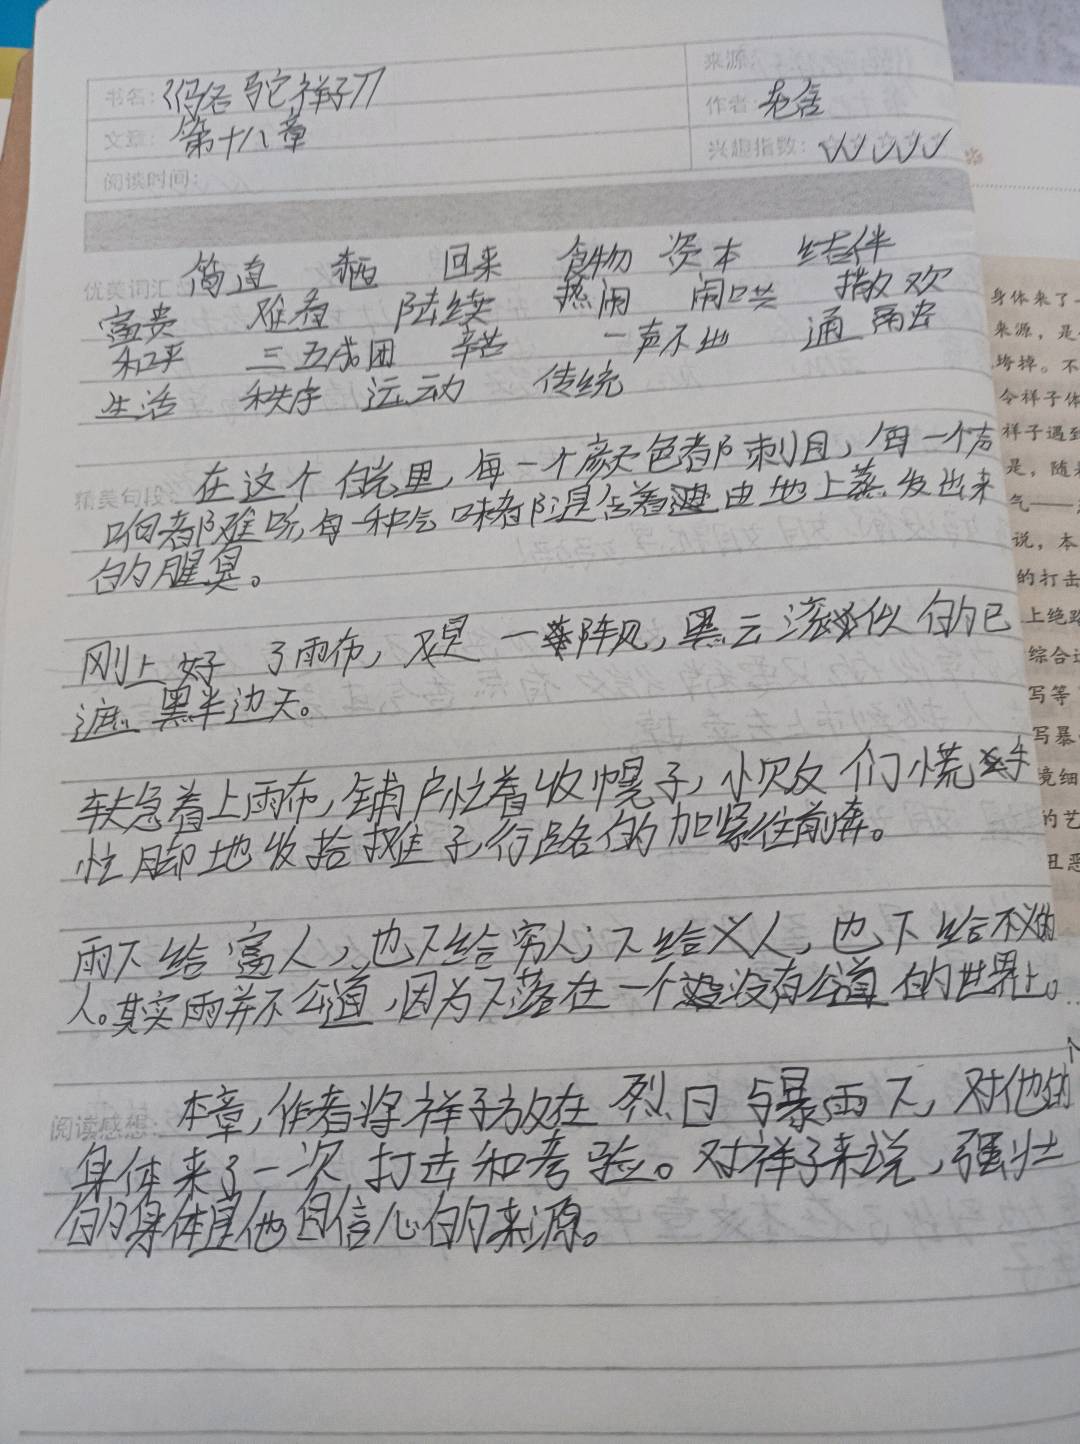 书名：《骆驼祥子》
来源：
作者：老舍
文章：第十八章
兴趣指数：
阅读时间：
优美词汇：
简直 晒 回来 食物 资本 结伴
富贵 难看 陆续 热闹 闹哄 撒欢
和平 三五成团 辛苦 一声不出 通
生活 秩序 运动 传统
精美句段：
在这个白光里，每一个颜色都刺目，每一个声
响都难听，每一种气味都混含着由地上蒸发出来
的腥臭。
刚上好了雨布，又是一阵风，黑云滚似的已
遮黑半边天。
车夫急着上雨布，铺户忙着收幌子，小贩们慌手
忙脚地收拾摊子，行路的加紧往前奔。
雨下给富人，也下给穷人；下给义人，也下给不义的
人。其实雨并不公道，因为下落在一个没有公道的世界上。
阅读感想：
本章，作者将祥子放在烈日与暴雨下，对他的
身体来了一次打击和考验。对祥子来说，强壮
的身体是他自信心的来源。
身体来了一
来源，是
垮掉。不
令祥子体
祥子遇到
是，随
气——
说，本
的打击
上绝路
综合运
写等
写暴
境细
的艺
丑恶